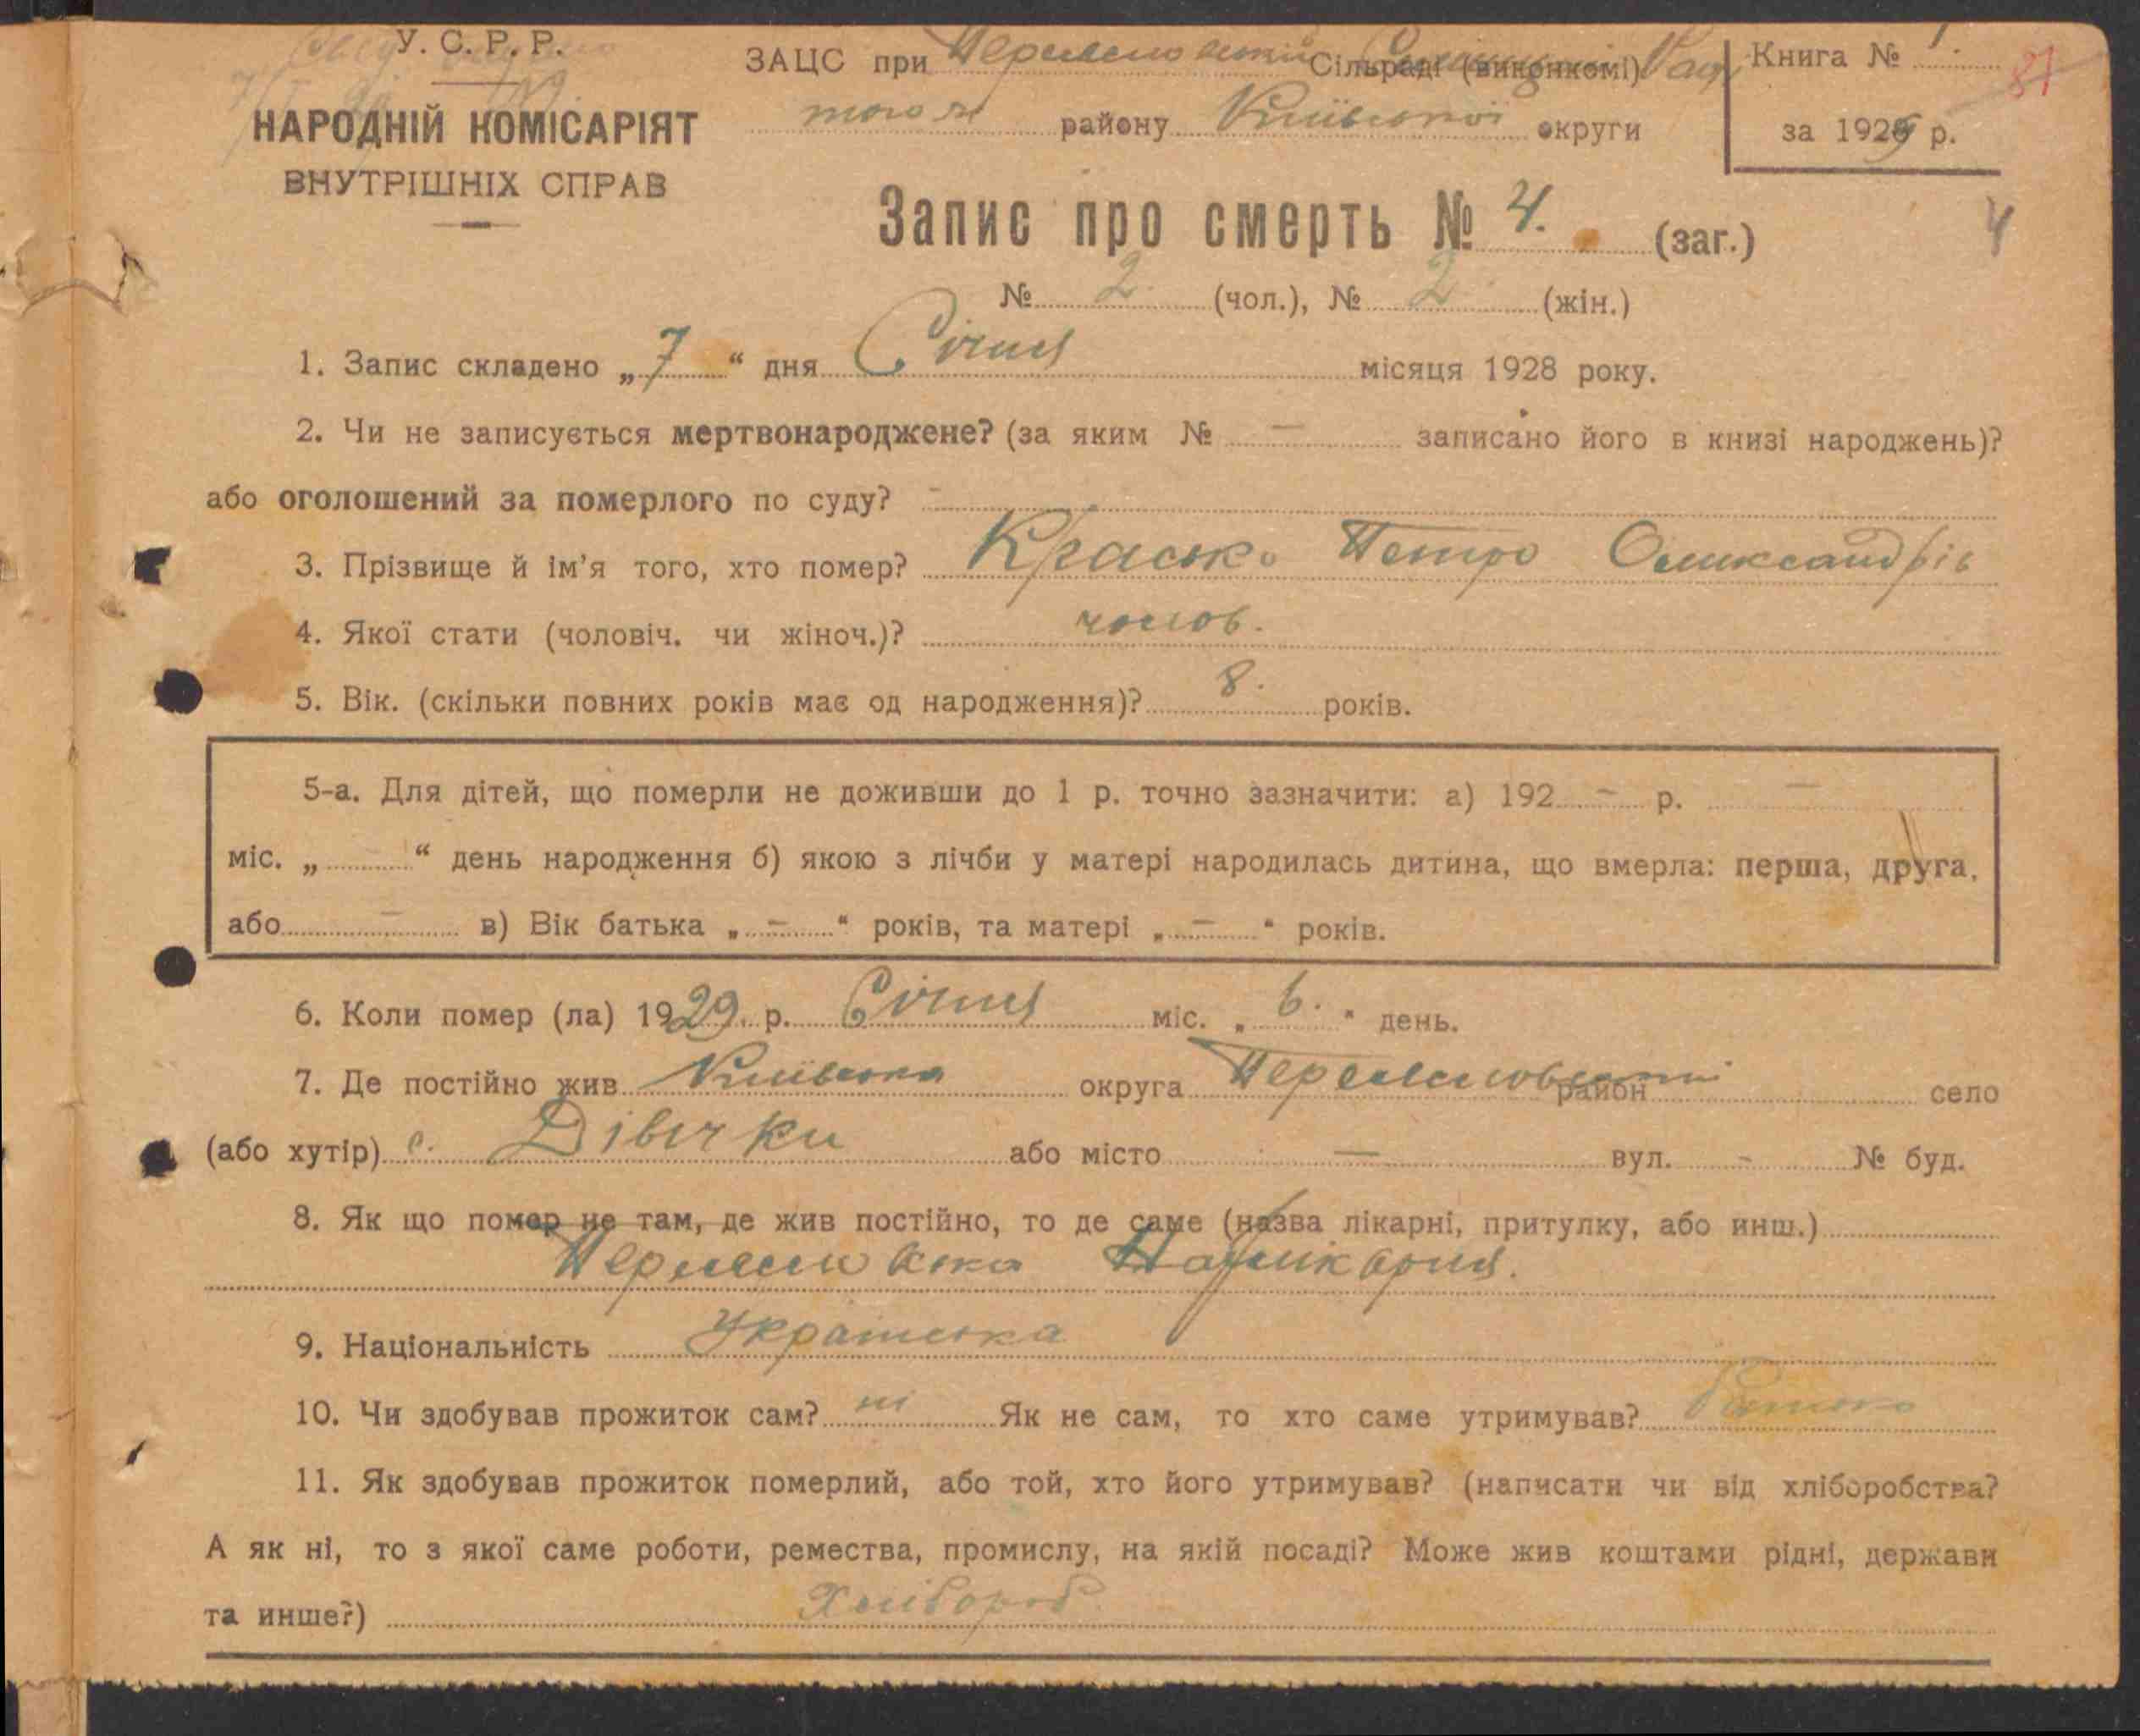 У. С. Р. Р.
НАРОДНІЙ КОМІСАРІЯТ
ВНУТРІШНІХ СПРАВ
ЗАЦС при Сільраді (виконкомі)
того ж району Київської округи
Книга № 1.
81
за 1929 р.
Запис про смерть № 4. (заг.)
4
№ 2. (чол.), № 2. (жін.)
1. Запис складено „7“ дня Січня місяця 1928 року.
2. Чи не записується мертвонароджене? (за яким № — записано його в книзі народжень)?
або оголошений за померлого по суду? -
3. Прізвище й ім'я того, хто помер? Красько Петро Олександрів
4. Якої стати (чоловіч. чи жіноч.)? чолов.
5. Вік. (скільки повних років має од народження)? 8. років.
5-а. Для дітей, що померли не доживши до 1 р. точно зазначити: а) 192 - р. —
міс. „ “ день народження б) якою з лічби у матері народилась дитина, що вмерла: перша, друга,
або — в) Вік батька „ — “ років, та матері „ — “ років.
6. Коли помер (ла) 1929. р. Січня міс. „ 6. “ день.
7. Де постійно жив Київська округа район село
(або хутір) с. Дівички або місто — вул. - № буд.
8. Як що помер не там, де жив постійно, то де саме (назва лікарні, притулку, або инш.)
9. Національність Українська
10. Чи здобував прожиток сам? ні Як не сам, то хто саме утримував? Батько
11. Як здобував прожиток померлий, або той, хто його утримував? (написати чи від хліборобства?
А як ні, то з якої саме роботи, ремества, промислу, на якій посаді? Може жив коштами рідні, держави
та инше?) Хлібороб